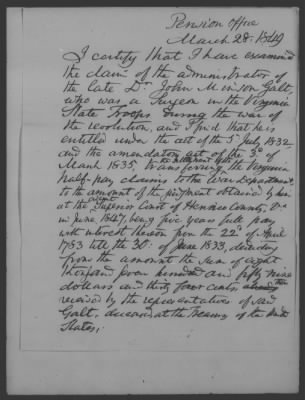 Pension Office
March 28. 1849
I certify that I have examined
the claim of the administrator of
the late Dr. John Minson Galt,
who was a Surgeon in the Virginia
State Troops during the war of
the revolution, and I find that he is
entitled under the act of the 5. July 1832
and the amendatory act of the 3d of
March 1835, transferring the Virginia
half-pay claims to the War Department
to the amount of the judgment obtained by him
at the Superior Court of Henrico County, Va
in June, 1847, being five years full pay
with interest thereon from the 22d of April
1783 till the 30th of June 1833, deducting
from the amount the sum of eight
thousand seven hundred and fifty nine
dollars and thirty four cents
received by the representatives of said
Galt, deceased at the Treasury of the United
States;